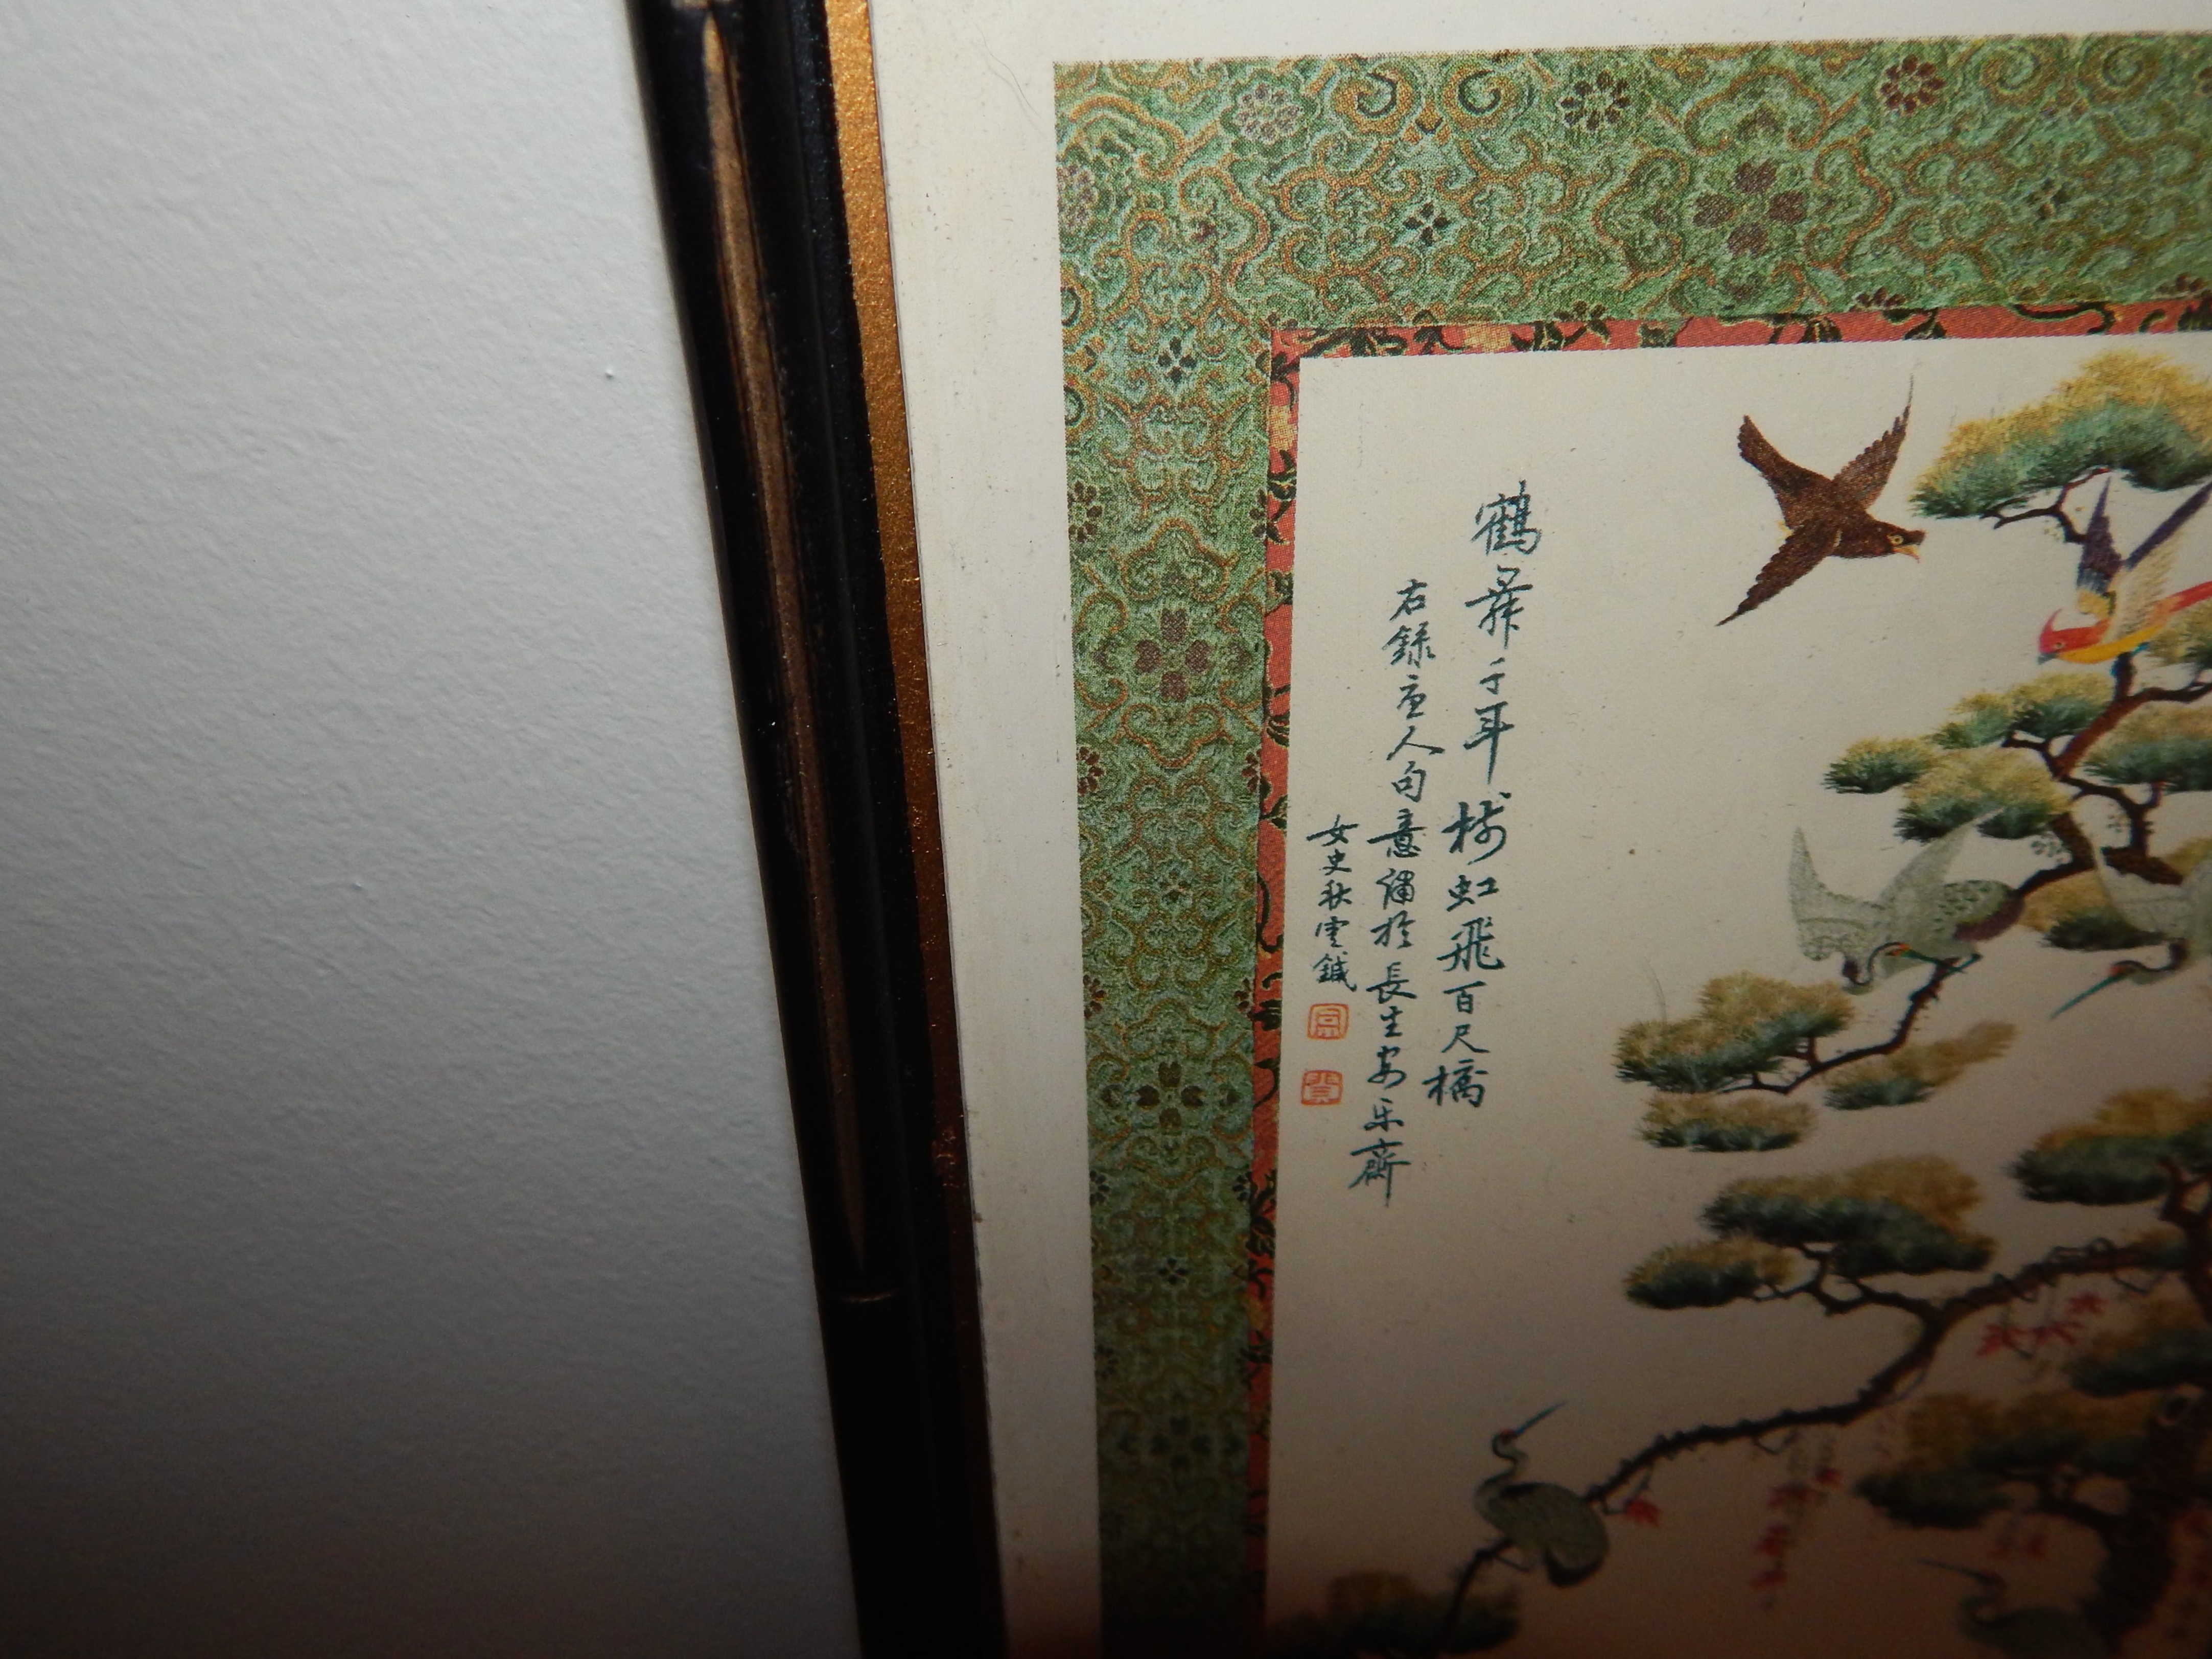 鶴舞千年樹虹飛百尺橋
右録唐人句意繡於長生安乐齋
女史秋雲鍼